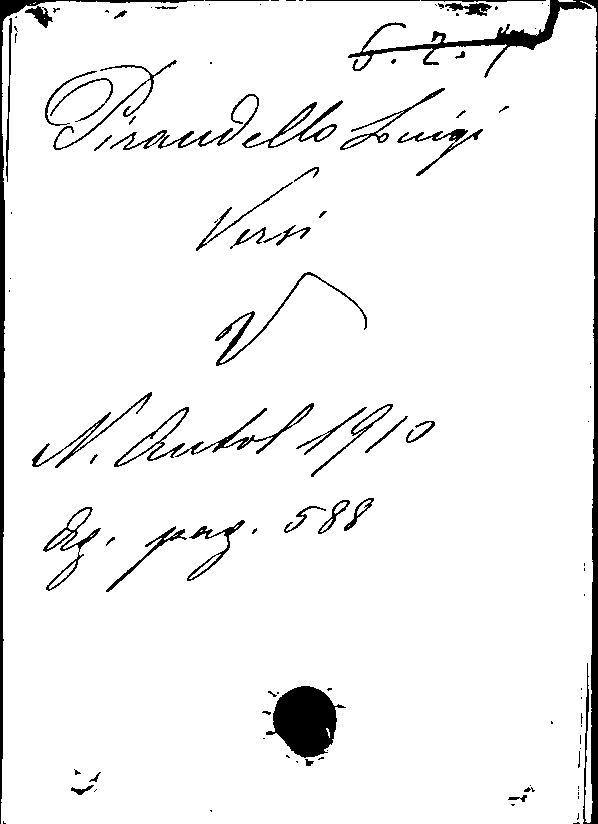 6. 2. 4
Pirandello Luigi
Versi
V
N. Antol 1910
pag. 588